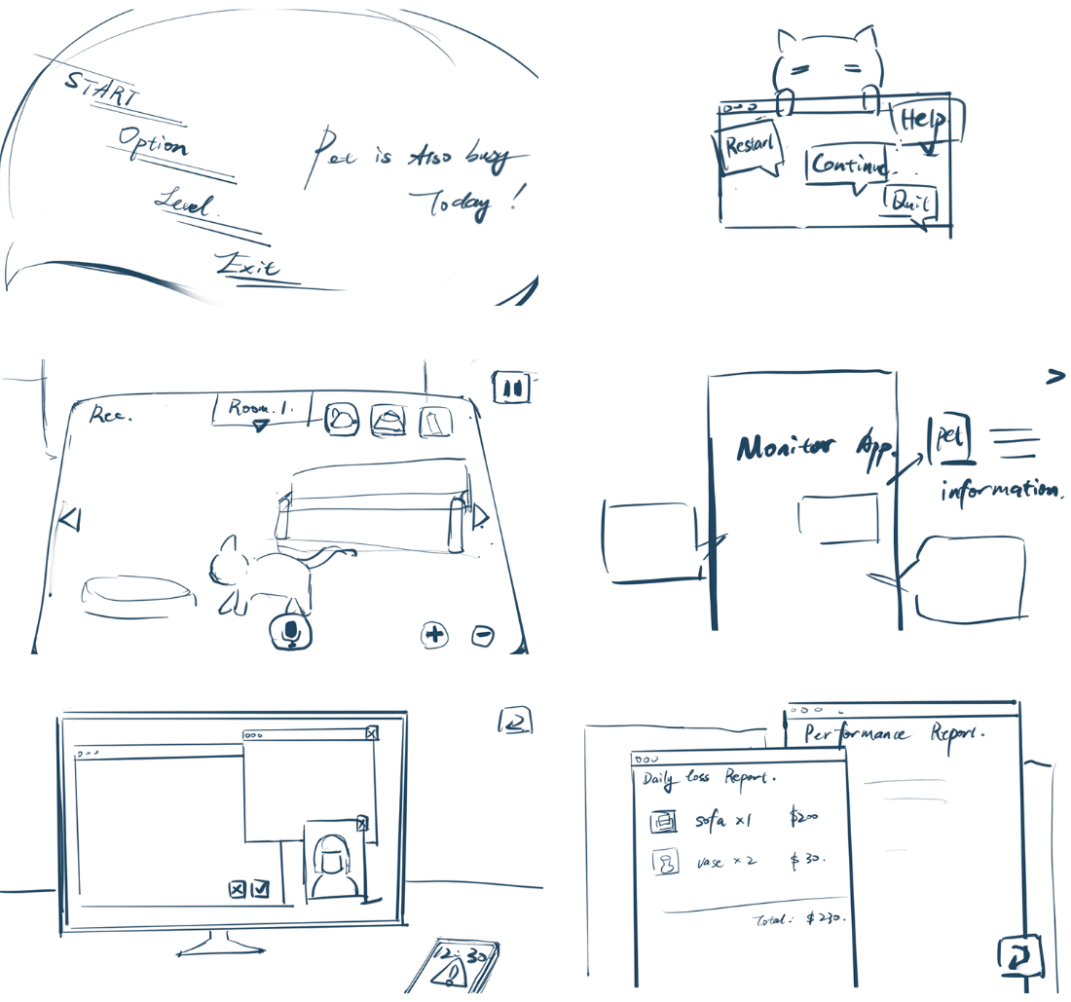 START
Option
Level.
Exit
Pet is Also busy
Today !
Help
Restart
Continue.
Quit
Rec.
Room.1.
Monitor App.
pet
information.
12:30
Performance Report.
Daily loss Report.
sofa ×1 $200
vase ×2 $30.
Total: $230.